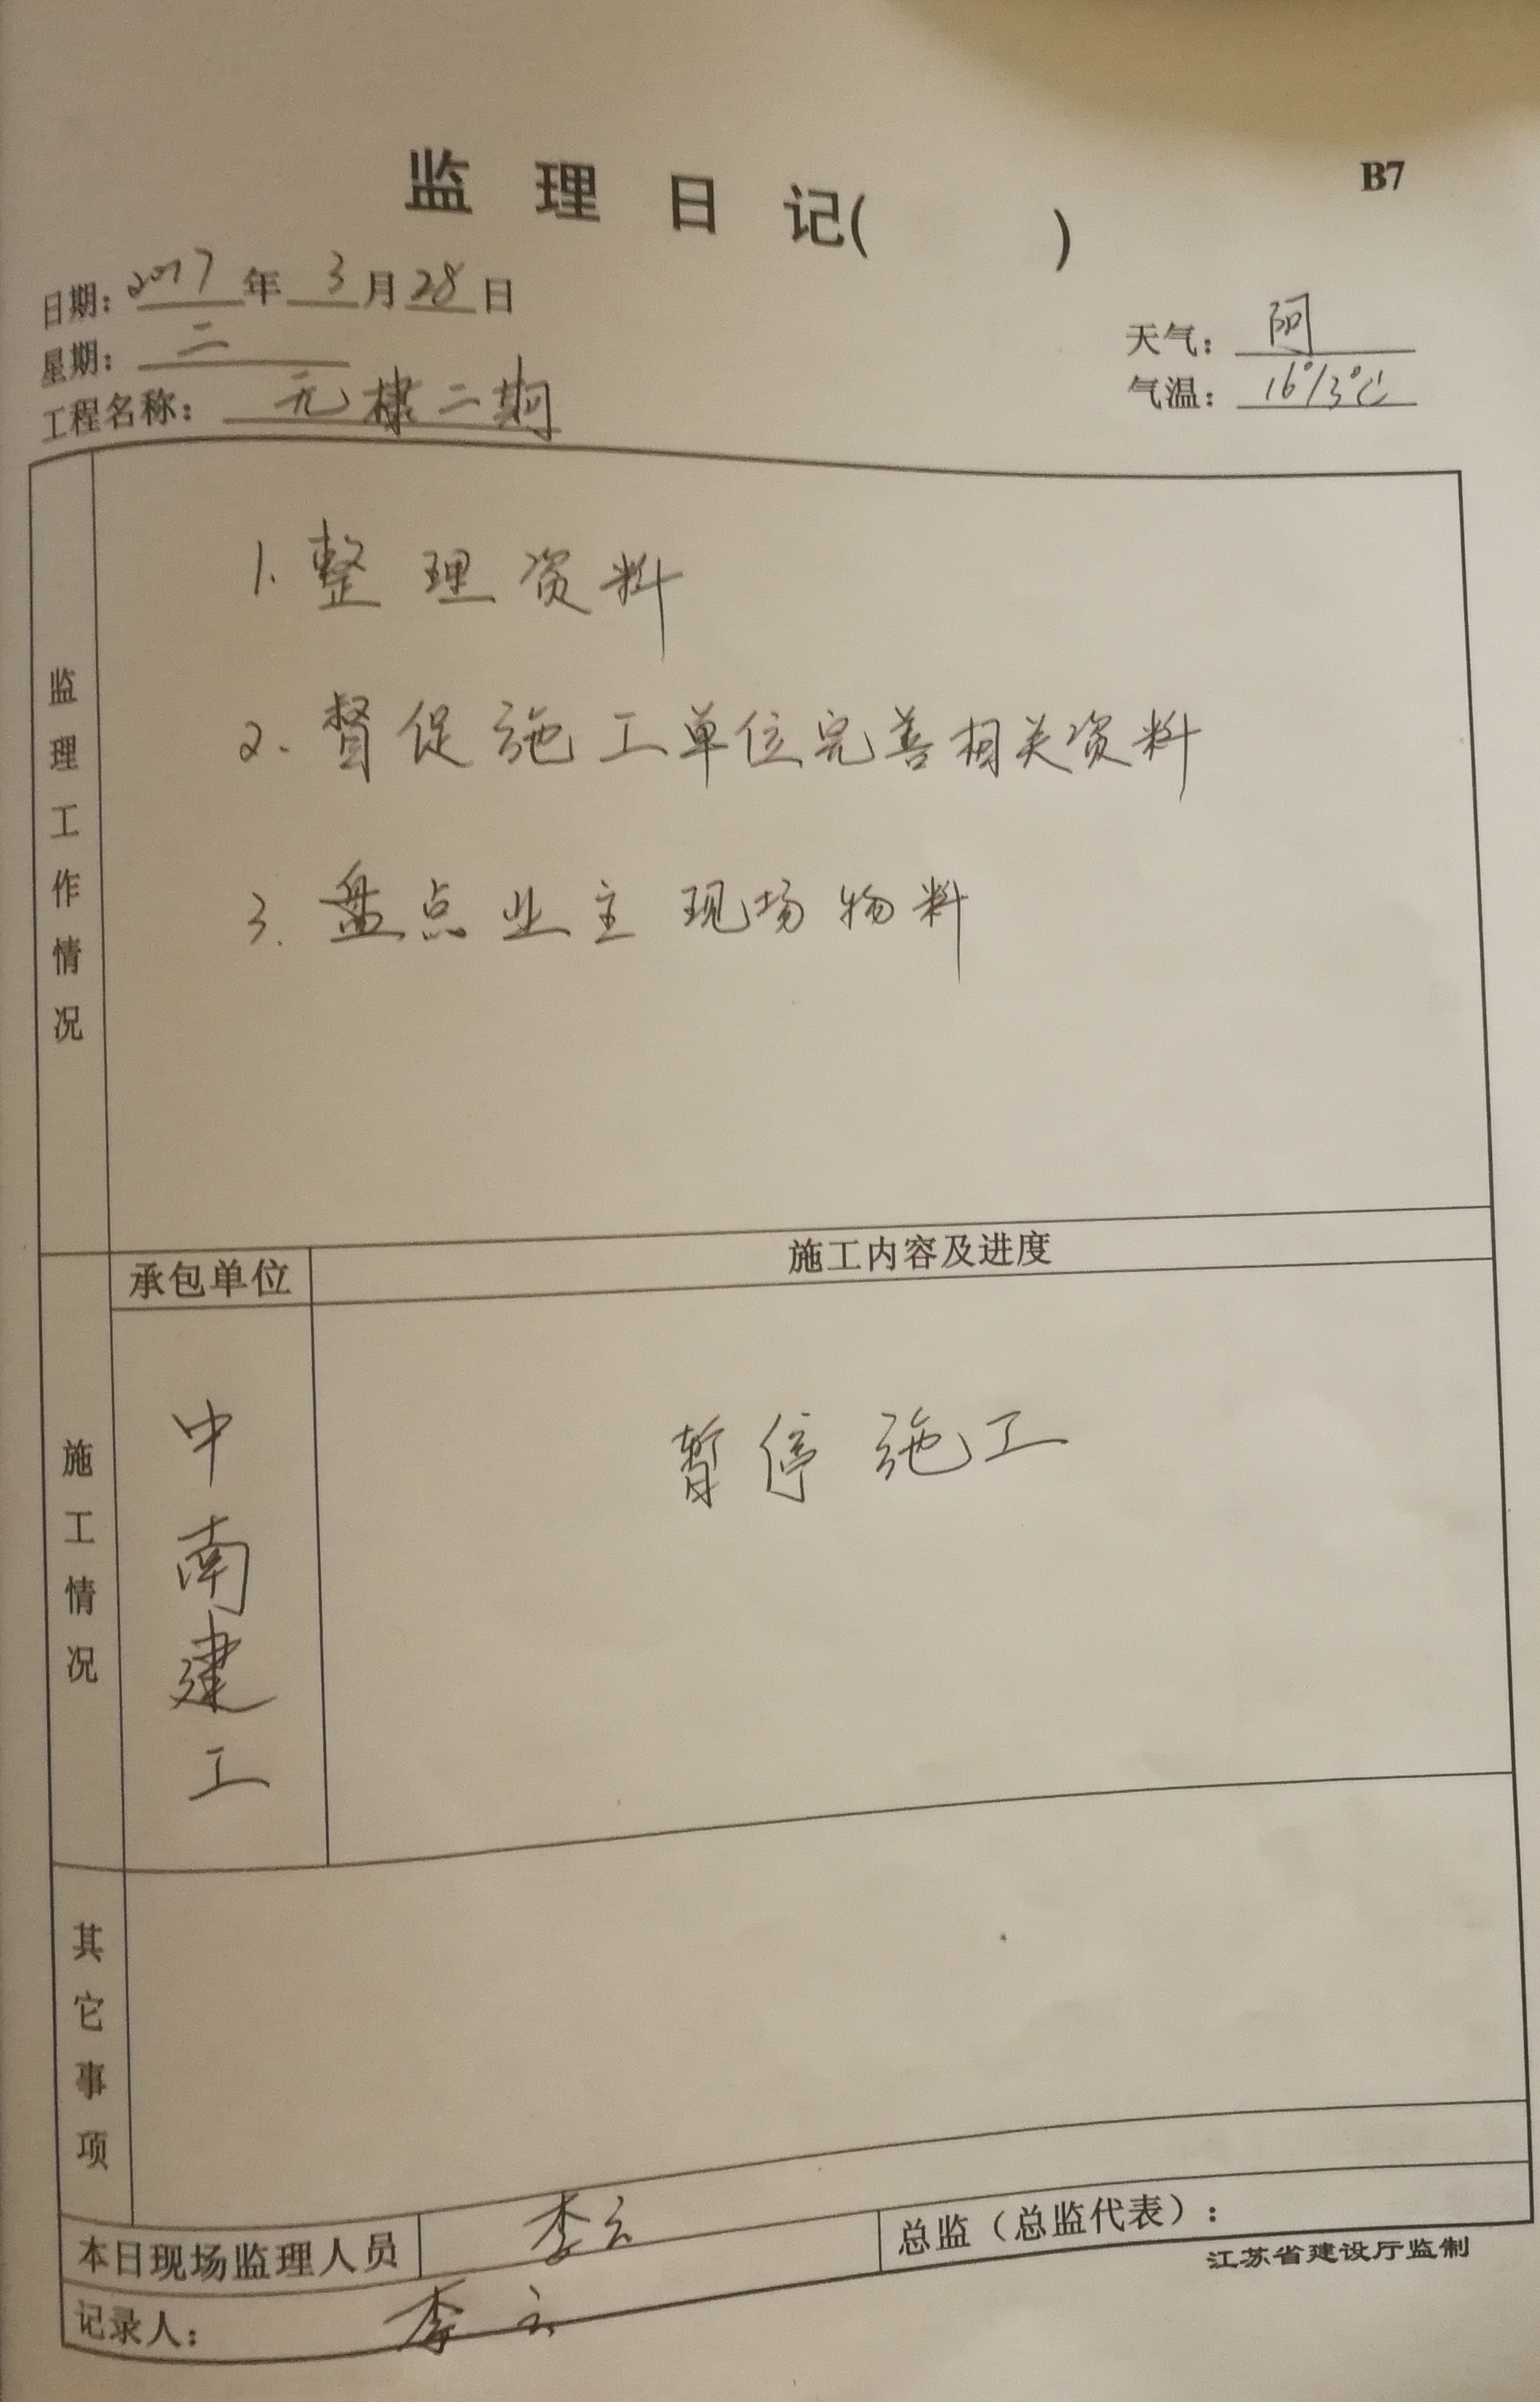 B7
监理日记( )
日期：2017年3月28日
星期：二
天气：阴
工程名称：元棣二期
气温：16°/3℃
监理工作情况
1. 整理资料
2. 督促施工单位完善相关资料
3. 盘点业主现场物料
施工情况
承包单位 施工内容及进度
中南建工 暂停施工
其它事项
本日现场监理人员 李云 总监（总监代表）：
记录人：李云
江苏省建设厅监制